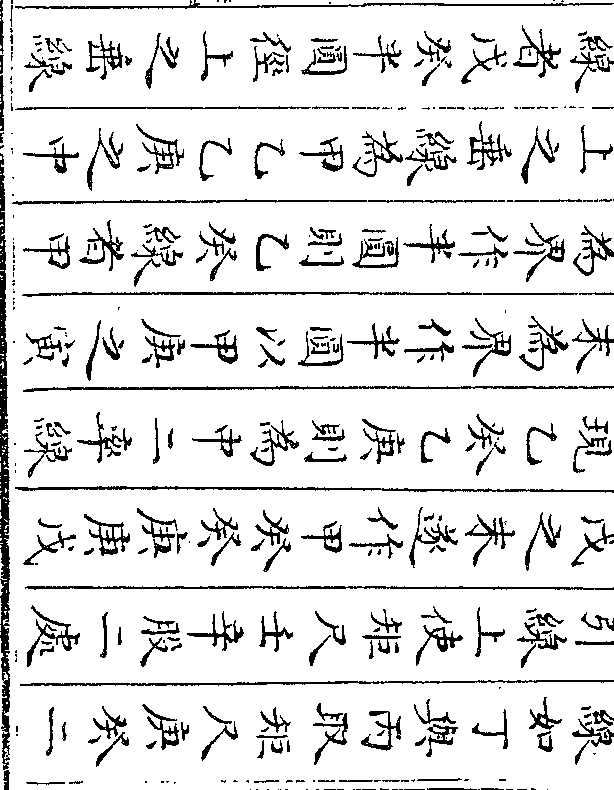 線如丁與丙取矩尺庚癸二
引線上使矩尺壬辛股二處
戊之末遂作甲癸癸庚庚戊
現乙癸乙庚則為中二率線
末為界作半圓以甲庚之寅
為界作半圓則乙癸線者甲
上之垂線為甲乙乙庚之中
線者戊癸半圓徑上之垂線